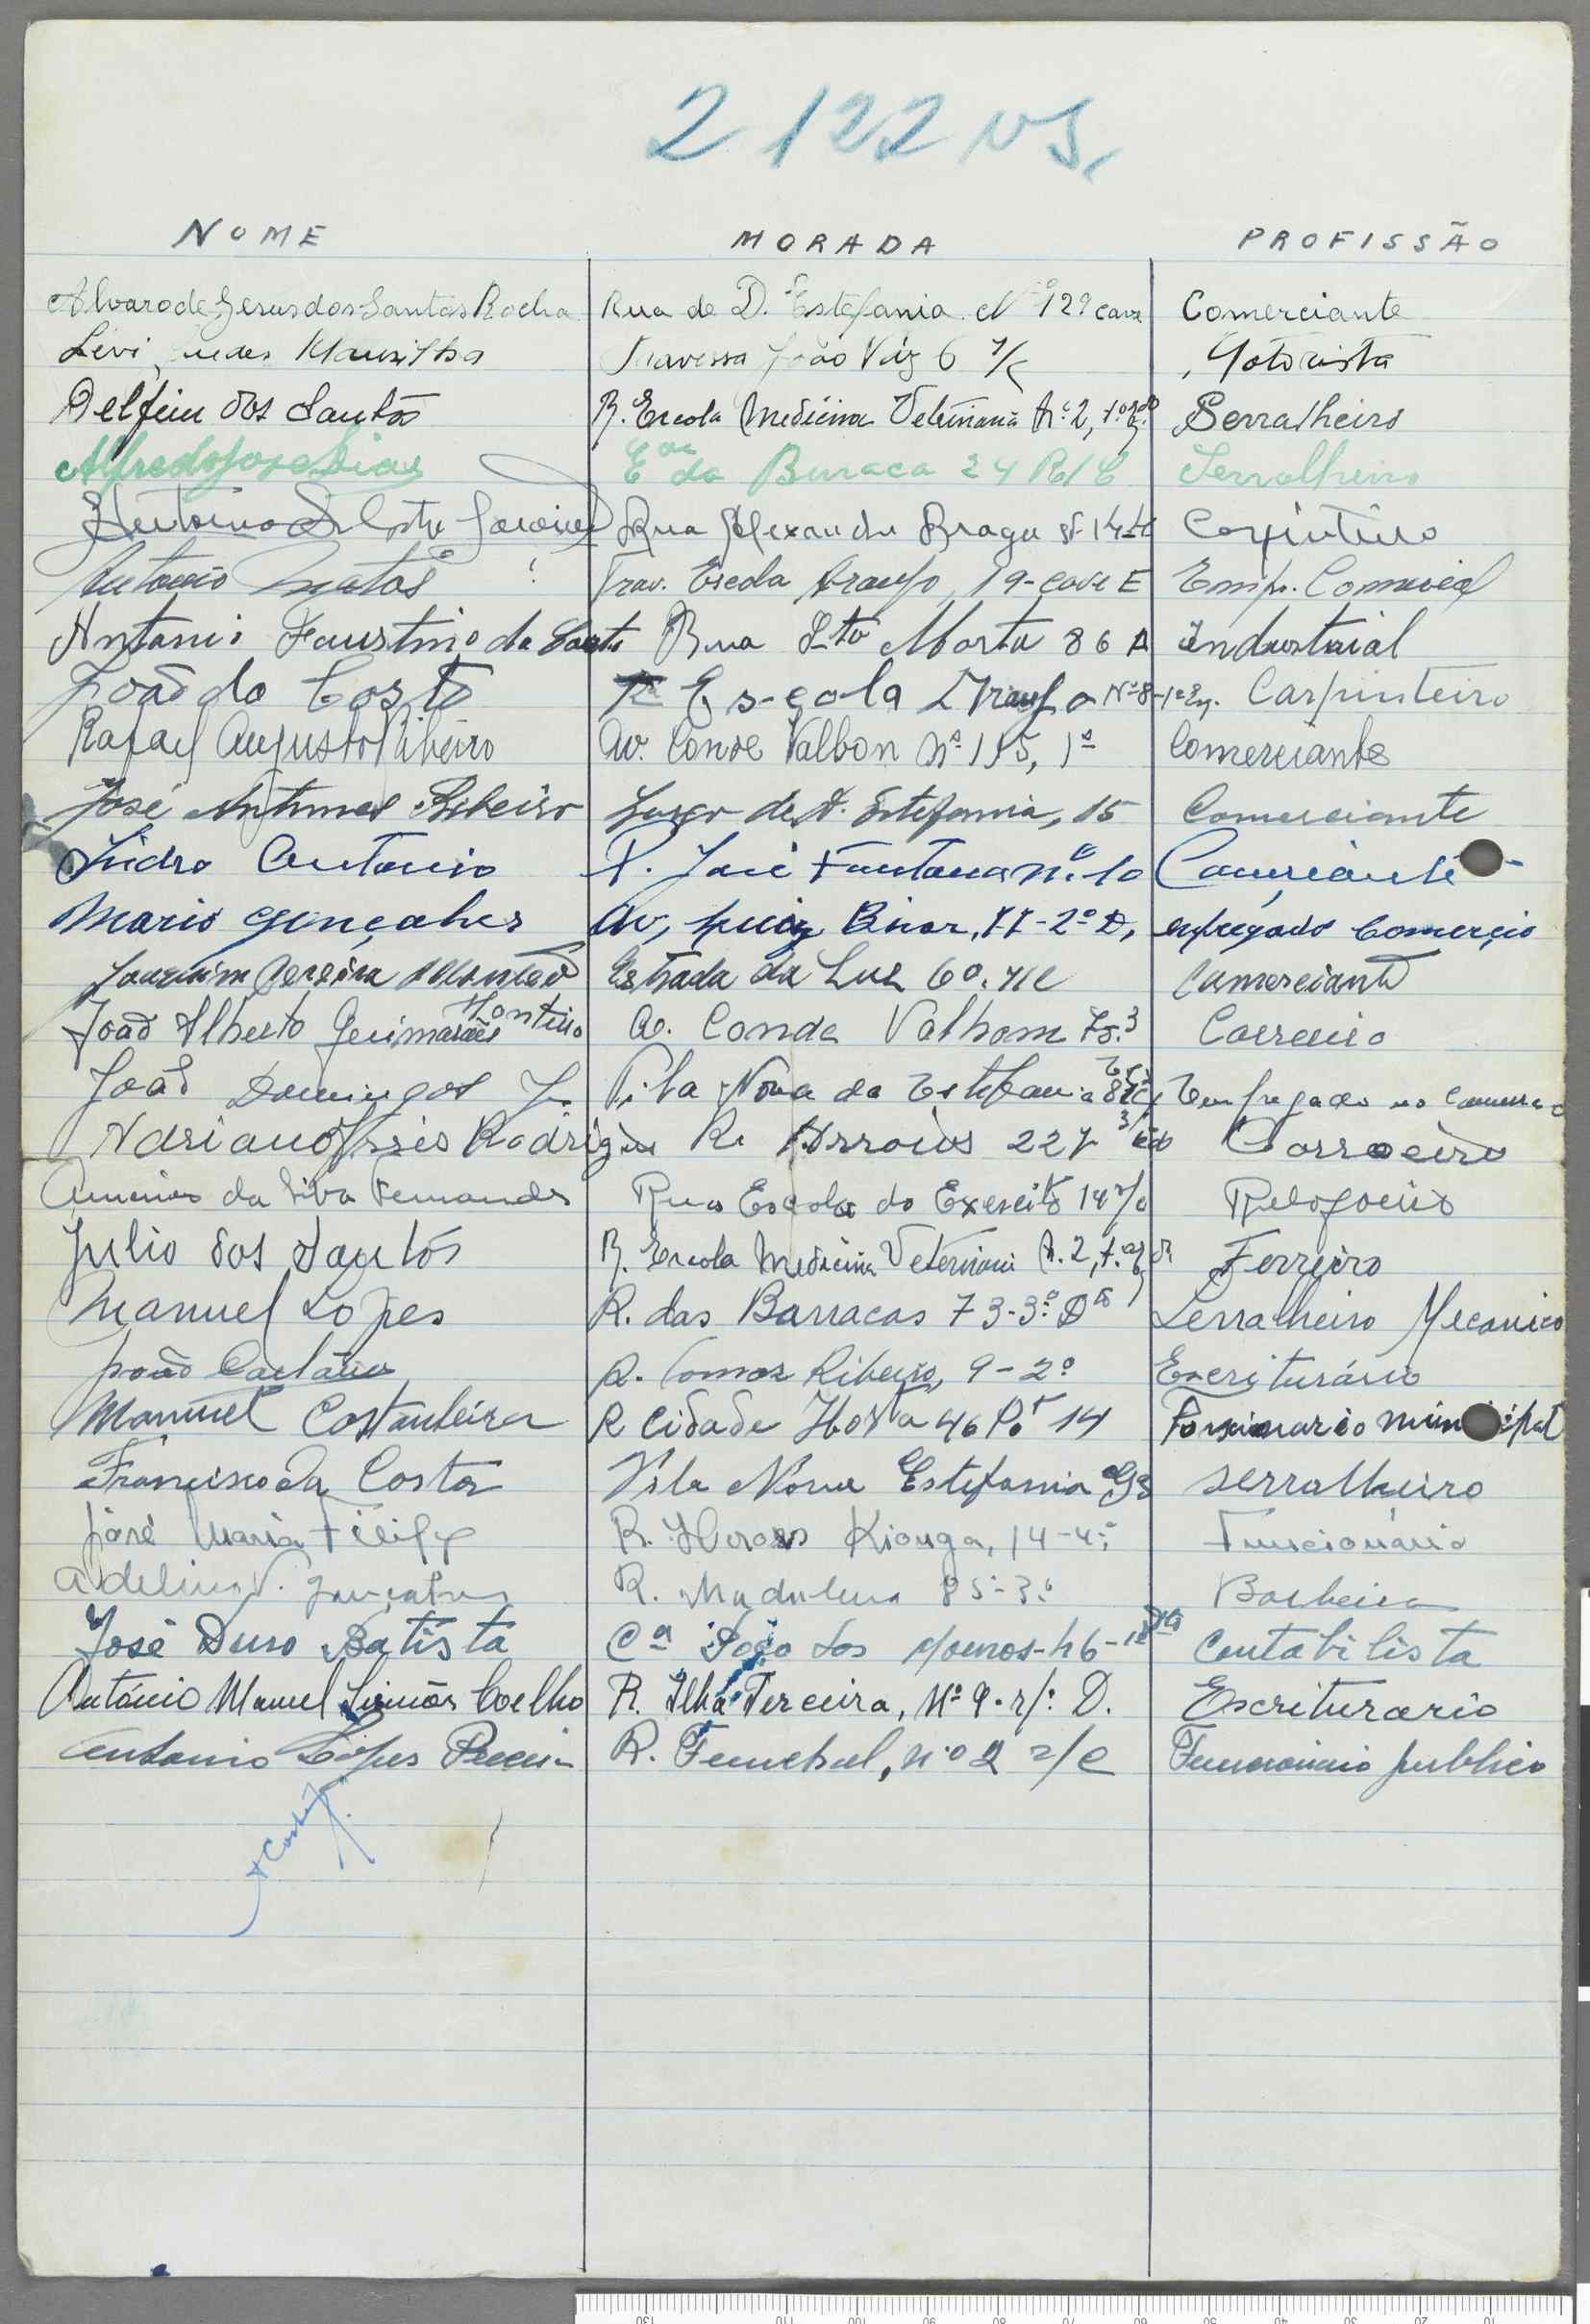 2122 vs.
NOME MORADA PROFISSÃO
Alvaro de Jesus dos Santos Rocha Rua de D. Estefania Nº 129 cave Comerciante
Levi Guedes Travessa João Váz 6 r/c Motorista
Delfim dos Santos R. Escola Medicina Veterinaria Nº 2, 1º Serralheiro
Alfredo Jose Dias da Buraca 24 R/C Serralheiro
Rua Alexandre Braga Carpinteiro
Antonio Matos Trav. Escola Araujo, 19-cave E Emp. Comercial
Antonio Faustino do Couto Rua Stª Marta 86 A Industrial
João da Costa Escola Araujo Nº 8-1º Carpinteiro
Rafael Augusto Ribeiro Av. Conde Valbon Nº 115, 1º Comerciante
José Antunes Ribeiro Largo de D. Estefania, 15 Comerciante
Isidro Antonio P. José Fontana nº 10 Comerciante
Mario Gonçalves Av, Luiz Bivar, 77-2º D, enpregado Comerçio
Joaquim Pereira Estrada da Luz 60. r/c Comerciante
João Alberto Guimarães Monteiro Av. Conde Valbom 75.3 Carreiro
João Domingos Jr. Vila Nova da Estefania Empregado no Comercio
Adriano Assis Rodrigues R. Arroios 227 Carroceiro
Americo da Silva Fernandes Rua Escola do Exercito 14 r/c Relojoeiro
Julio dos Santos R. Escola Medicina Veterinaria Nº 2, 1º Ferreiro
Manuel Lopes R. das Barracas 73-3º Dtº Serralheiro Mecanico
João Caetano R. Tomaz Ribeiro, 9-2º Escriturário
Manuel Costanteira R Cidade Horta 46 Pt 14 Municipal
Francisco da Costa Vila Nova Estefania serralheiro
José Maria Filipe R. Herois Kionga, 14-4º Funcionário
Adelino V. Gonçalves R. Madalena 85-3º Barbeiro
José Duro Batista Cª Poço dos Mouros-46-1º Dtº Contabilista
António Manuel Simões Coelho R. Ilha Terceira, Nº 9-r/c D. Escriturario
Antonio Lopes Pereira R. Funchal, nº 2 r/c Funcionario publico